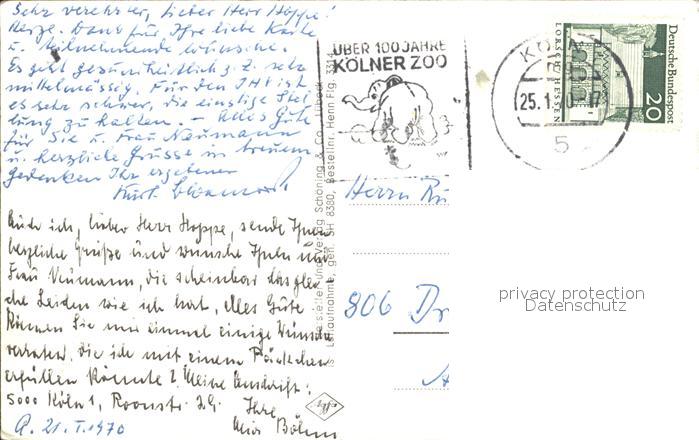 Sehr verehrter, lieber Herr Hoppe!
Herzl. Dank für Ihre liebe Karte
u. teilnehmende Wünsche.
Es geht gesundheitlich z. Z. sehr
mittelmässig. Für den IHV ist
es sehr schwer, die einstige Stel-
lung zu halten. – Alles Gute
für Sie u. Frau Neumann
u. herzliche Grüsse in treuem
gedenken Ihr ergebener
Kurt
Auch ich, lieber Herr Hoppe, sende Ihnen
herzliche Grüße und wünsche Ihnen und
Frau Neumann, die scheinbar das glei-
che Leiden wie ich hat, Alles Gute
Können Sie mir einmal einige Wünsche
verraten, die ich mit einem Päckchen
erfüllen könnte? Meine Anschrift:
5000 Köln 1, Roonstr.
Ihre
Böhm
A. 21.I.1970
ÜBER 100 JAHRE
KÖLNER ZOO
KÖLN
25.1.
5
Deutsche Bundespost
20
LORSCH/HESSEN
Herrn
806 D
Herstellung und Verlag Schöning & Co., Lübeck
Luftaufnahme, gen. SH 8380, Bestellnr. Henn Flg. 3314
Agfa
privacy protection
Datenschutz